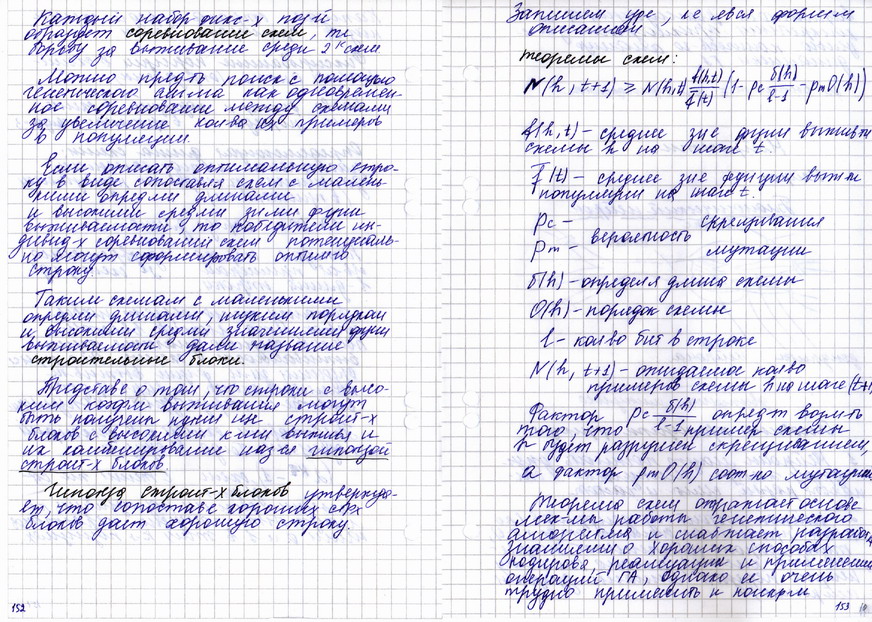 Каждый набор фикс-х поз-й
образует соревнование схем, те
борьбу за выживание среди 2ᵏ схем
Можно предть поиск с помощью
генетического алгма как одновремен-
ное соревнование между схемами
за увеличение колва их примеров
в популяции.
Если описать оптимальную стро-
ку в виде сопоставля схем с малень-
кими опредми длинами
и высокими средми зн-ми фции
выживаемости, то победители ин-
дивид-х соревнований схем потенциаль-
но могут сформировать оптимю
строку
Таким схемам с маленькими
опредми длинами, низким порядком
и высокими средми значениями фции
выживаемости дали название
строительные блоки.
Представе о том, что строки с высо-
ким коэфм выживания могут
быть получены путем строит-х
блоков с высокими к-ми выжив-я и
их комбинирование наз-ся гипотезой
строит-х блоков.
Гипотеза строит-х блоков утвержда-
ет, что сопоставе хороших стр-х
блоков дает хорошую строку.
152
Запишем уре, яв-ся формлм
описанием
теоремы схем:
N(h, t+1) ≥ N(h,t) f(h,t)/f̄(t) (1 - pc δ(h)/(l-1) - pm O(h))
f(h,t) – среднее зне фции выжив-ти
схемы h на шаге t.
f̄(t) – среднее зне функции выж-ти
популяции на шаге t.
pc – скрещивания
вероятность
pm – мутации
δ(h) – определя длина схемы
O(h) – порядок схемы
l – колво бит в строке
N(h, t+1) – ожидаемое колво
примеров схемы h на шаге (t+1)
Фактор pc δ(h)/(l-1) определт вероят-ть
того, что пример схемы
h будет разрушен скрещиванием,
а фактор pm O(h) соот-но мутации
Теорема схем отражает основе
мех-мы работы генетического
алгоритма и снабжает разработч
знаниями о хороших способах
кодирова, реализации и применении
операций ГА, однако ее очень
трудно применить к конкрм
153